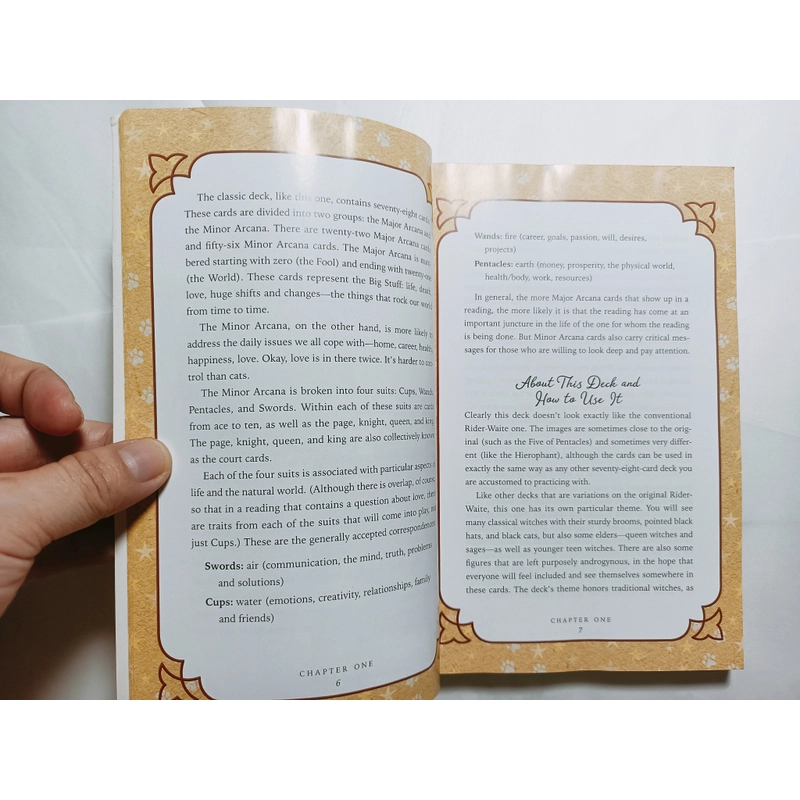 The classic deck, like this one, contains seventy-eight cards.
These cards are divided into two groups: the Major Arcana and
the Minor Arcana. There are twenty-two Major Arcana cards
and fifty-six Minor Arcana cards. The Major Arcana is num-
bered starting with zero (the Fool) and ending with twenty-one
(the World). These cards represent the Big Stuff: life, death,
love, huge shifts and changes—the things that rock our world
from time to time.
The Minor Arcana, on the other hand, is more likely to
address the daily issues we all cope with—home, career, health,
happiness, love. Okay, love is in there twice. It's harder to con-
trol than cats.
The Minor Arcana is broken into four suits: Cups, Wands,
Pentacles, and Swords. Within each of these suits are cards
from ace to ten, as well as the page, knight, queen, and king.
The page, knight, queen, and king are also collectively known
as the court cards.
Each of the four suits is associated with particular aspects of
life and the natural world. (Although there is overlap, of course,
so that in a reading that contains a question about love, there
are traits from each of the suits that will come into play, not
just Cups.) These are the generally accepted correspondences:
Swords: air (communication, the mind, truth, problems
and solutions)
Cups: water (emotions, creativity, relationships, family
and friends)
CHAPTER ONE
6
Wands: fire (career, goals, passion, will, desires,
projects)
Pentacles: earth (money, prosperity, the physical world,
health/body, work, resources)
In general, the more Major Arcana cards that show up in a
reading, the more likely it is that the reading has come at an
important juncture in the life of the one for whom the reading
is being done. But Minor Arcana cards also carry critical mes-
sages for those who are willing to look deep and pay attention.
About This Deck and
How to Use It
Clearly this deck doesn't look exactly like the conventional
Rider-Waite one. The images are sometimes close to the orig-
inal (such as the Five of Pentacles) and sometimes very differ-
ent (like the Hierophant), although the cards can be used in
exactly the same way as any other seventy-eight-card deck you
are accustomed to practicing with.
Like other decks that are variations on the original Rider-
Waite, this one has its own particular theme. You will see
many classical witches with their sturdy brooms, pointed black
hats, and black cats, but also some elders—queen witches and
sages—as well as younger teen witches. There are also some
figures that are left purposely androgynous, in the hope that
everyone will feel included and see themselves somewhere in
these cards. The deck's theme honors traditional witches, as
CHAPTER ONE
7